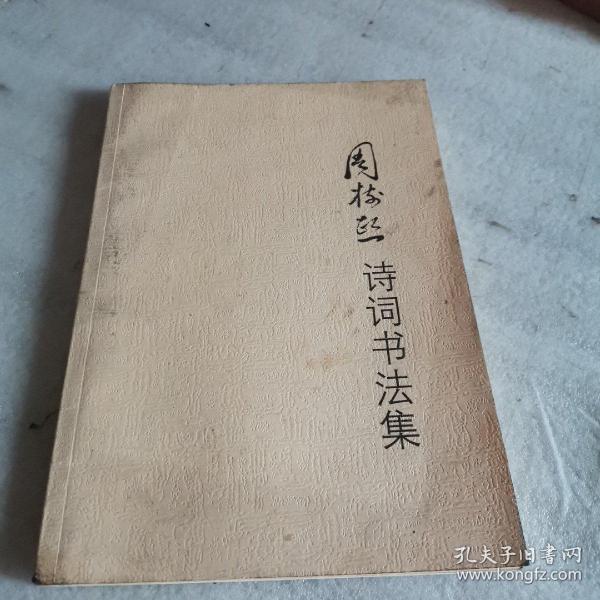 周树熙
诗词书法集
孔夫子旧書网
www.kongfz.com